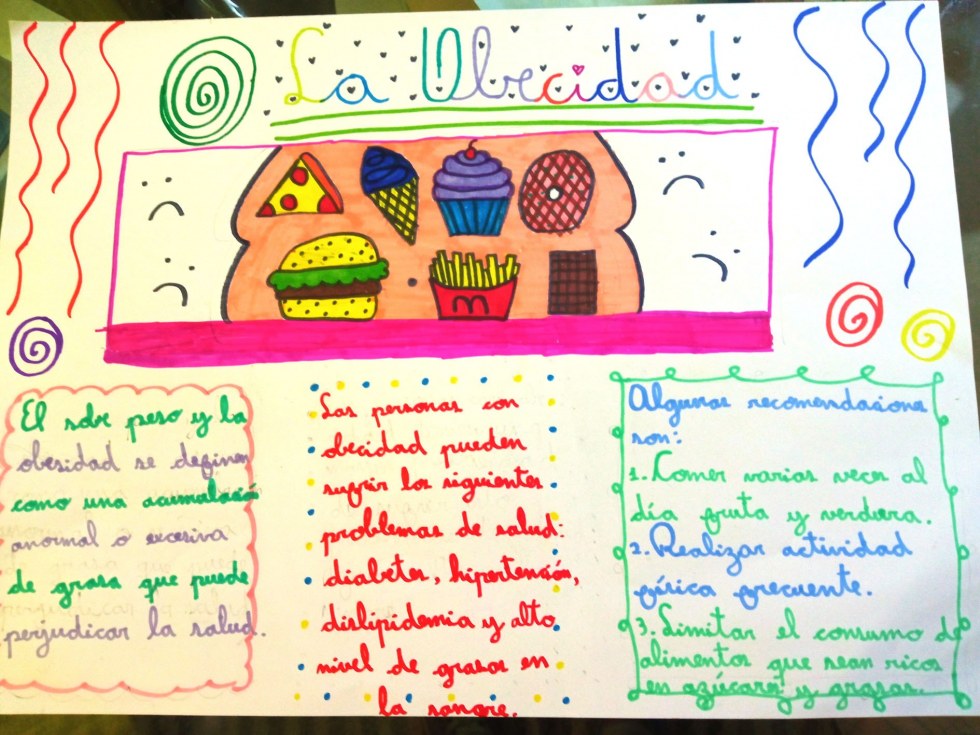 La Obecidad
El sobre peso y la
obesidad se definen
como una acumulación
anormal o excesiva
de grasa que puede
perjudicar la salud.
Las personas con
obecidad pueden
sufrir los siguientes
problemas de salud:
diabetes, hipertensión,
dislipidemia y alto
nivel de grasas en
la sangre.
Algunas recomendaciones
son:
1. Comer varias veces al
día fruta y verdura.
2. Realizar actividad
física frecuente.
3. Limitar el consumo de
alimentos que sean ricos
en azúcares y grasas.